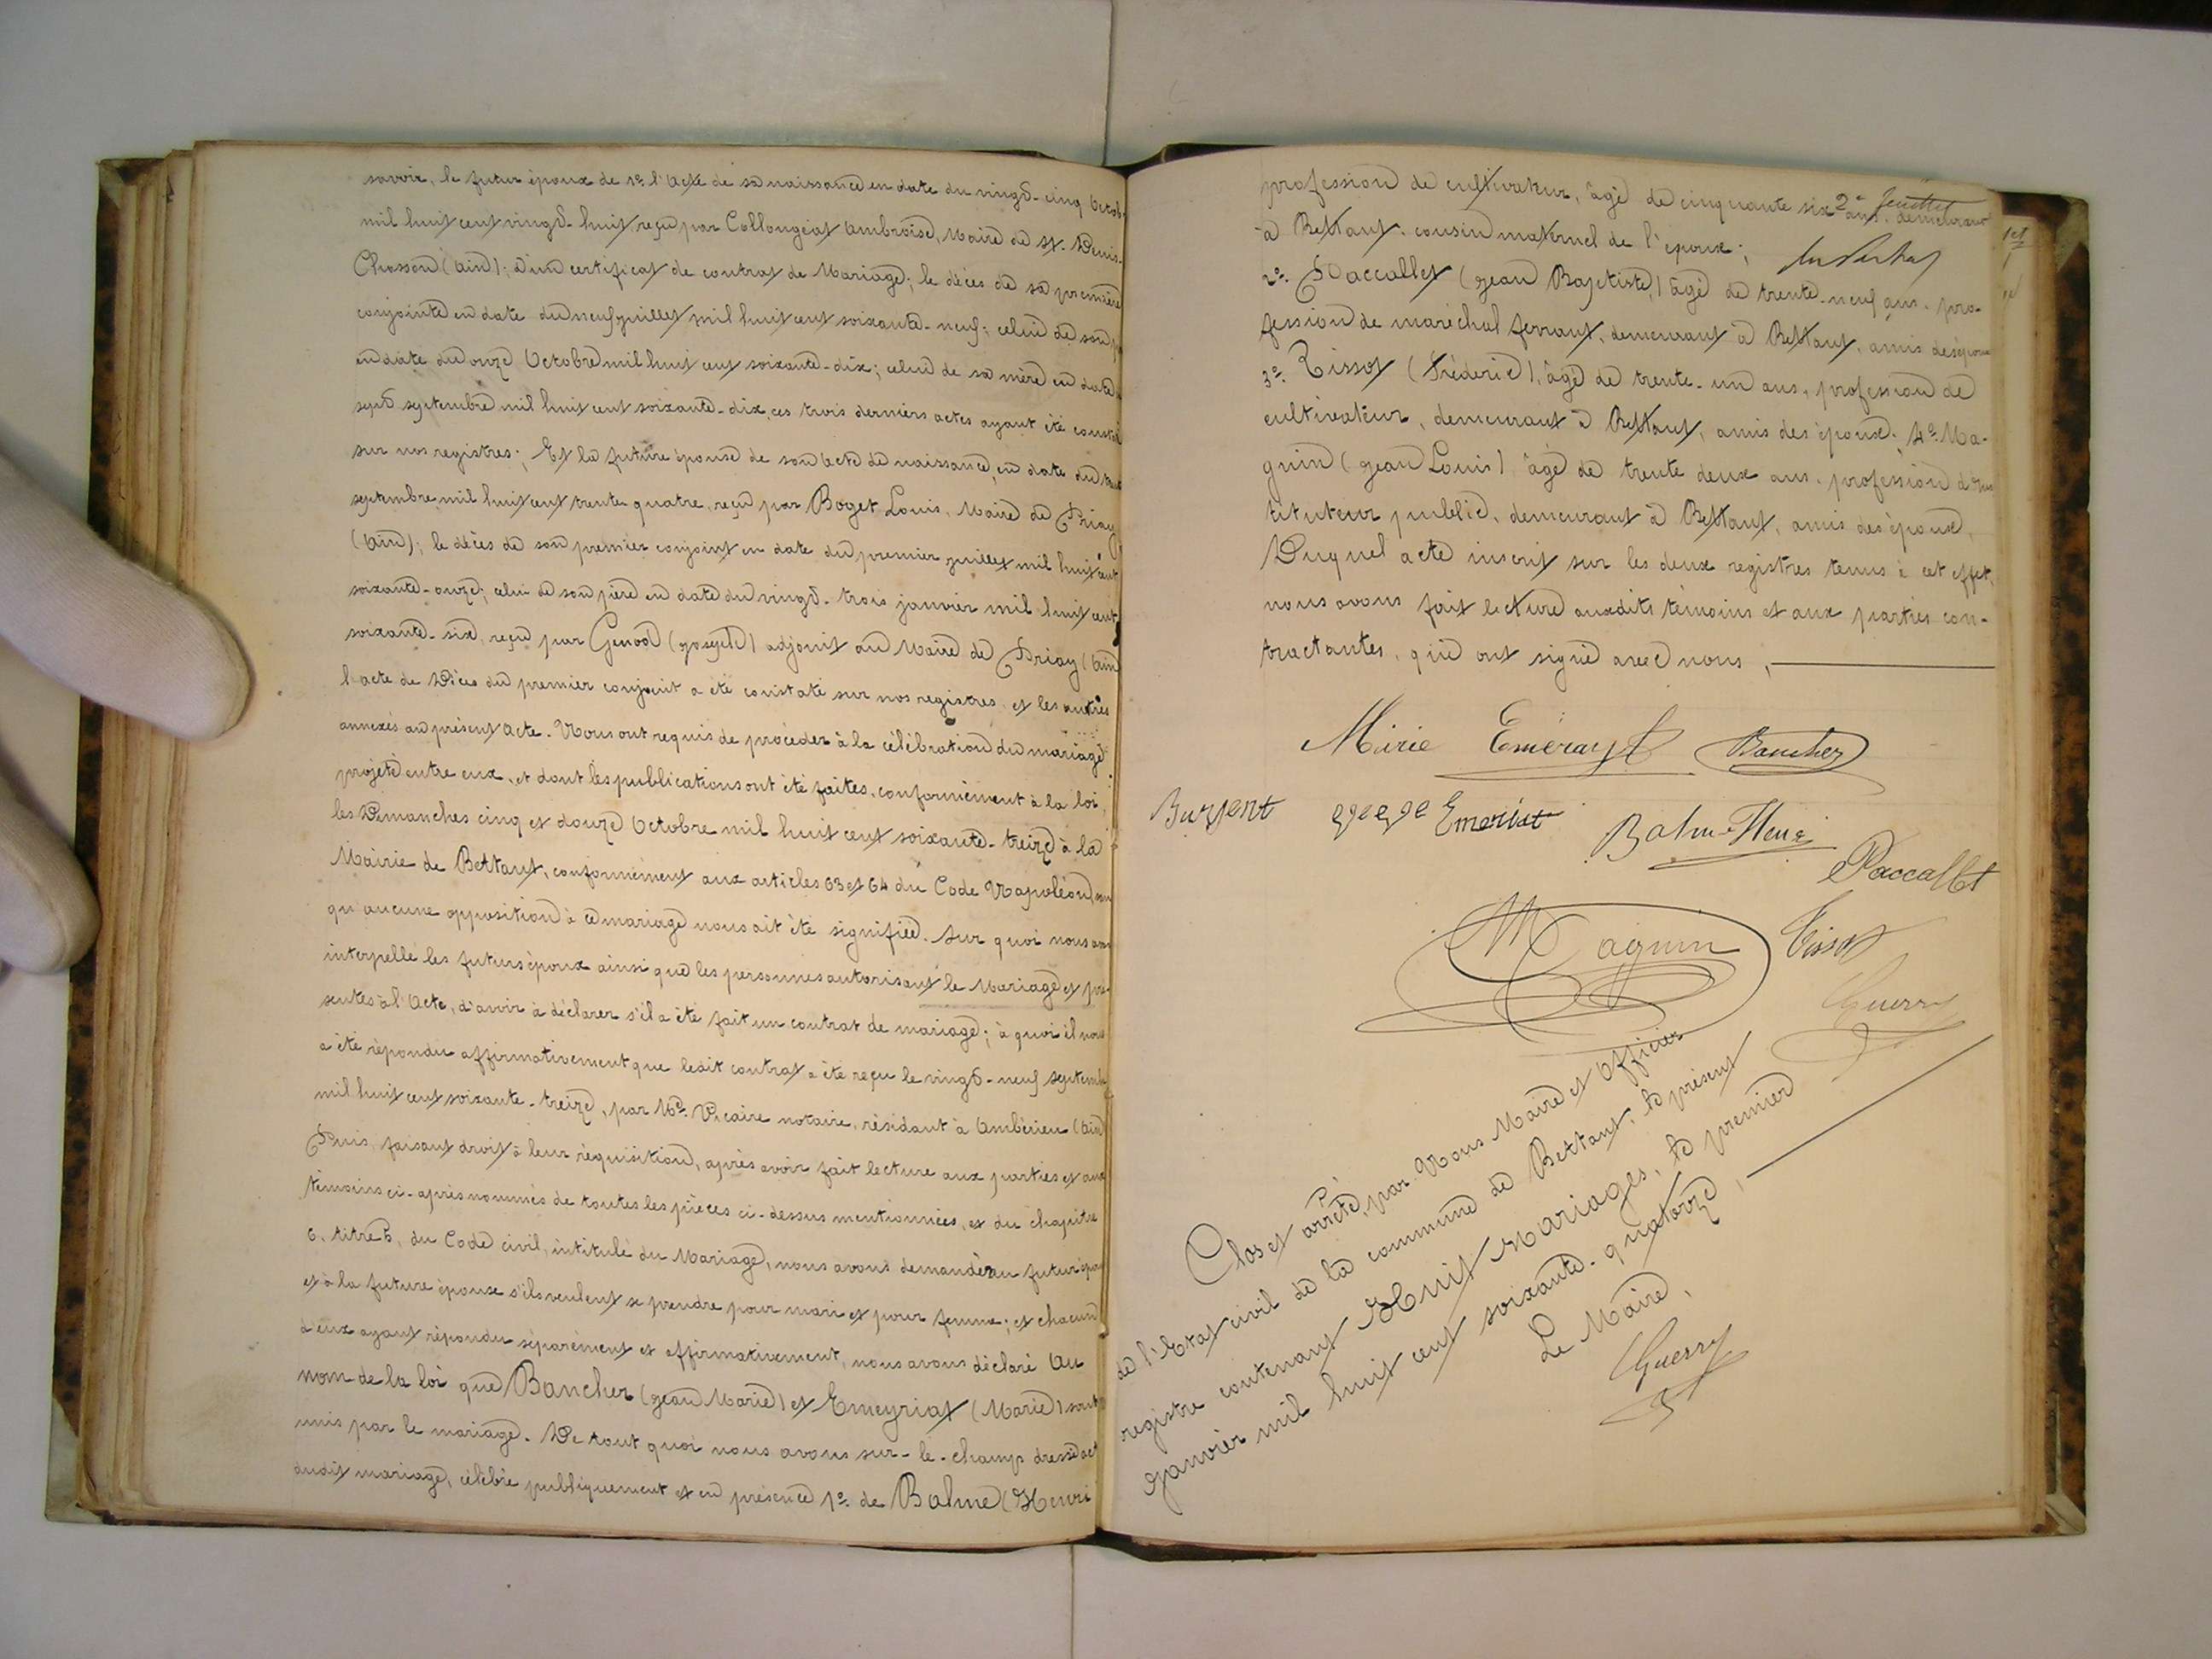 savoir, le futur époux de 1º. l'Acte de sa naissance en date du vingt-cinq Octob
mil huit cent vingt-huit reçu par Collongeat Ambroise, Maire de St. Denis-
Chosson (Ain); d'un certificat de contrat de Mariage; le décès de sa première
conjointe en date du neuf juillet mil huit cent soixante-neuf; celui de son
en date du onze Octobre mil huit cent soixante-dix; celui de sa mère en date
sept septembre mil huit cent soixante-dix, ces trois derniers actes ayant été constat
sur nos registres; Et la future épouse de son acte de naissance, en date du
septembre mil huit cent trente quatre, reçu par Boget Louis, Maire de Priay
(Ain); le décès de son premier conjoint en date du premier juillet mil huit cent
soixante-onze; celui de son père en date du vingt-trois janvier mil huit cent
soixante-six, reçu par Genod (Joseph) adjoint au Maire de Priay (Ain
l'acte de Décès du premier conjoint a été constaté sur nos registres et les autres
annexés au présent Acte. Nous ont requis de procéder à la célébration du mariage
projeté entre eux, et dont les publications ont été faites, conformément à la loi,
les Dimanches cinq et douze Octobre mil huit cent soixante-treize à la
Mairie de Bettant, conformément aux articles 63 et 64 du Code Napoléon,
qu'aucune opposition à ce mariage nous ait été signifiée. Sur quoi nous avons
interpellé les futurs époux ainsi que les personnes autorisant le Mariage et pré-
sentes à l'Acte, d'avoir à déclarer s'il a été fait un contrat de mariage; à quoi il nous
a été répondu affirmativement que ledit contrat a été reçu le vingt-neuf septembre
mil huit cent soixante-treize, par Me. Vicaire notaire, résidant à Ambérieu (Ain)
Puis, faisant droit à leur réquisition, après avoir fait lecture aux parties et aux
témoins ci-après nommés de toutes les pièces ci-dessus mentionnées, et du chapitre
6, titre 5, du Code civil, intitulé du Mariage, nous avons demandé au futur époux
et à la future épouse s'ils veulent se prendre pour mari et pour femme; et chacun
d'eux ayant répondu séparément et affirmativement, nous avons déclaré Au
nom de la loi que Bancher (Jean Marie) et Emeyriat (Marie) sont
unis par le mariage. De tout quoi nous avons sur-le-champ dressé act
dudit mariage, célébré publiquement et en présence 1º. de Balme (Henri
2e feuillet
profession de cultivateur, âgé de cinquante six ans, demeurant
à Bettant, cousin maternel de l'époux;
2º. Paccallet (Jean Baptiste) âgé de trente-neuf ans, pro-
fession de maréchal ferrant, demeurant à Bettant, amis des époux
3º. Tissot (Fréderic), âgé de trente-un ans, profession de
cultivateur, demeurant à Bettant, amis des époux. 4º. Ma-
gnin (Jean Louis) âgé de trente deux ans, profession d'Ins
tituteur public, demeurant à Bettant, amis des époux.
Duquel acte inscrit sur les deux registres tenus à cet effet,
nous avons fait lecture auxdits témoins et aux parties con-
tractantes, qui ont signé avec nous.
Marie Emerayt Bancher
Emeriat Balme Henri
Paccallet
Magnin Tissot
Guerry
Clos et arrêté, par Nous Maire et Officier
de l'Etat civil de la commune de Bettant, le présent
registre contenant Huit Mariages, le premier
Janvier mil huit cent soixante-quatorze,
Le Maire,
Guerry